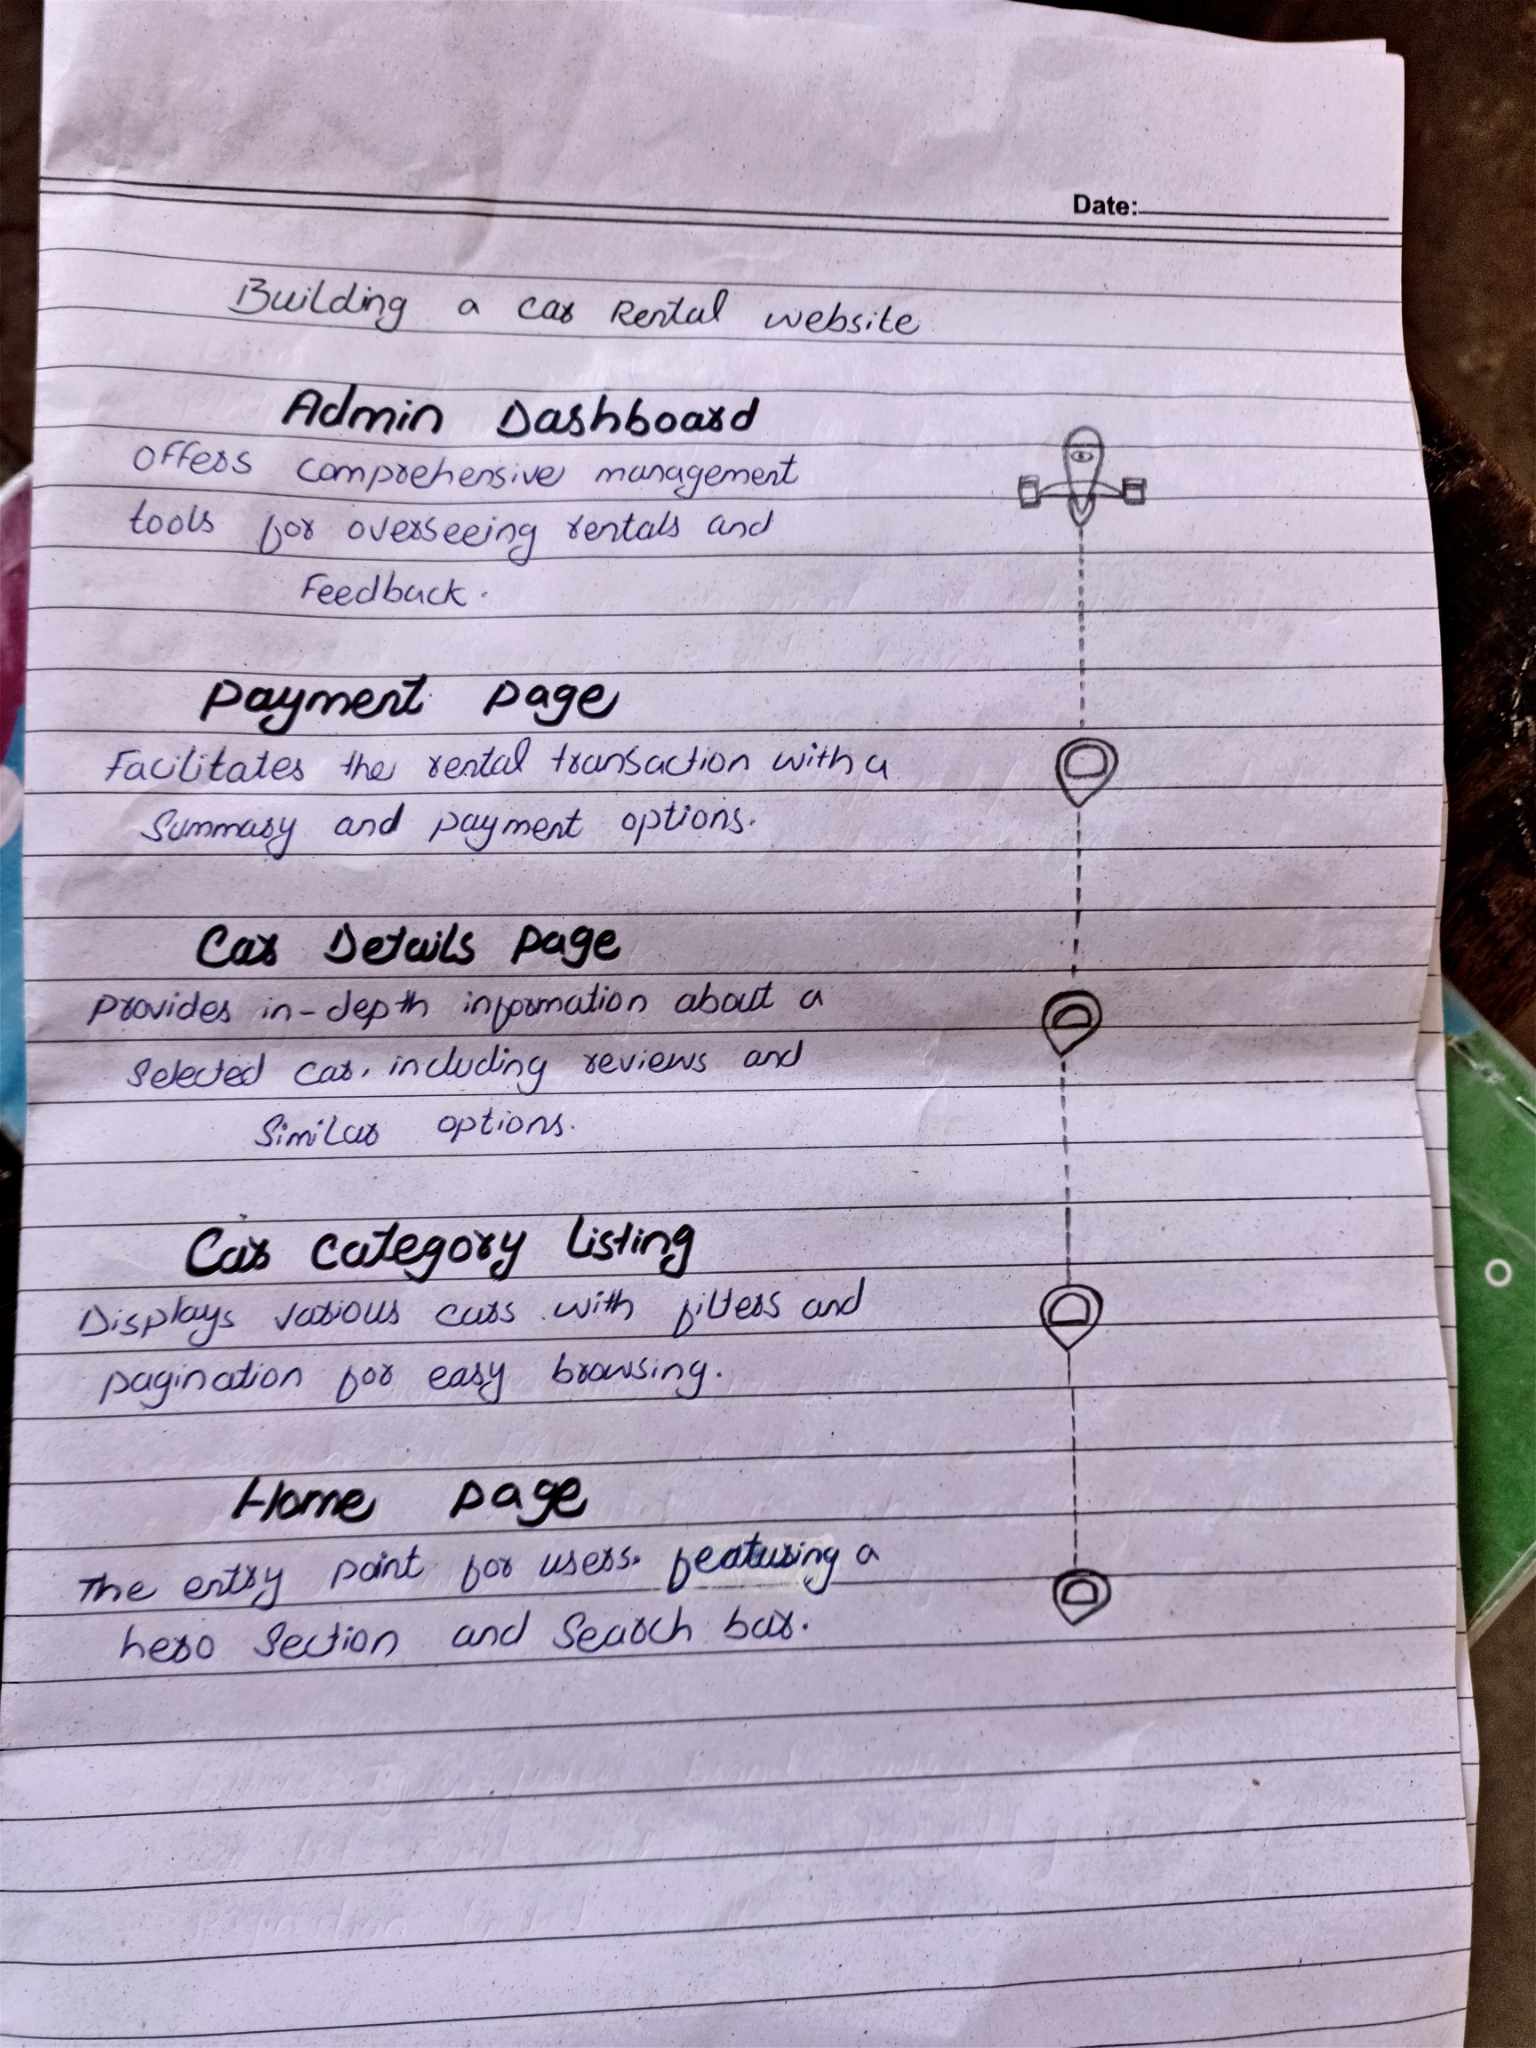 Date:
Building a car Rental website
Admin Dashboard
offers comprehensive management
tools for overseeing rentals and
Feedback.
Payment page
Facilitates the rental transaction with a
Summary and payment options.
Car Details page
provides in-depth information about a
selected car, including reviews and
similar options.
Car category Listing
Displays various cars with filters and
pagination for easy browsing.
Home page
The entry point for users. featuring a
hero section and search bar.